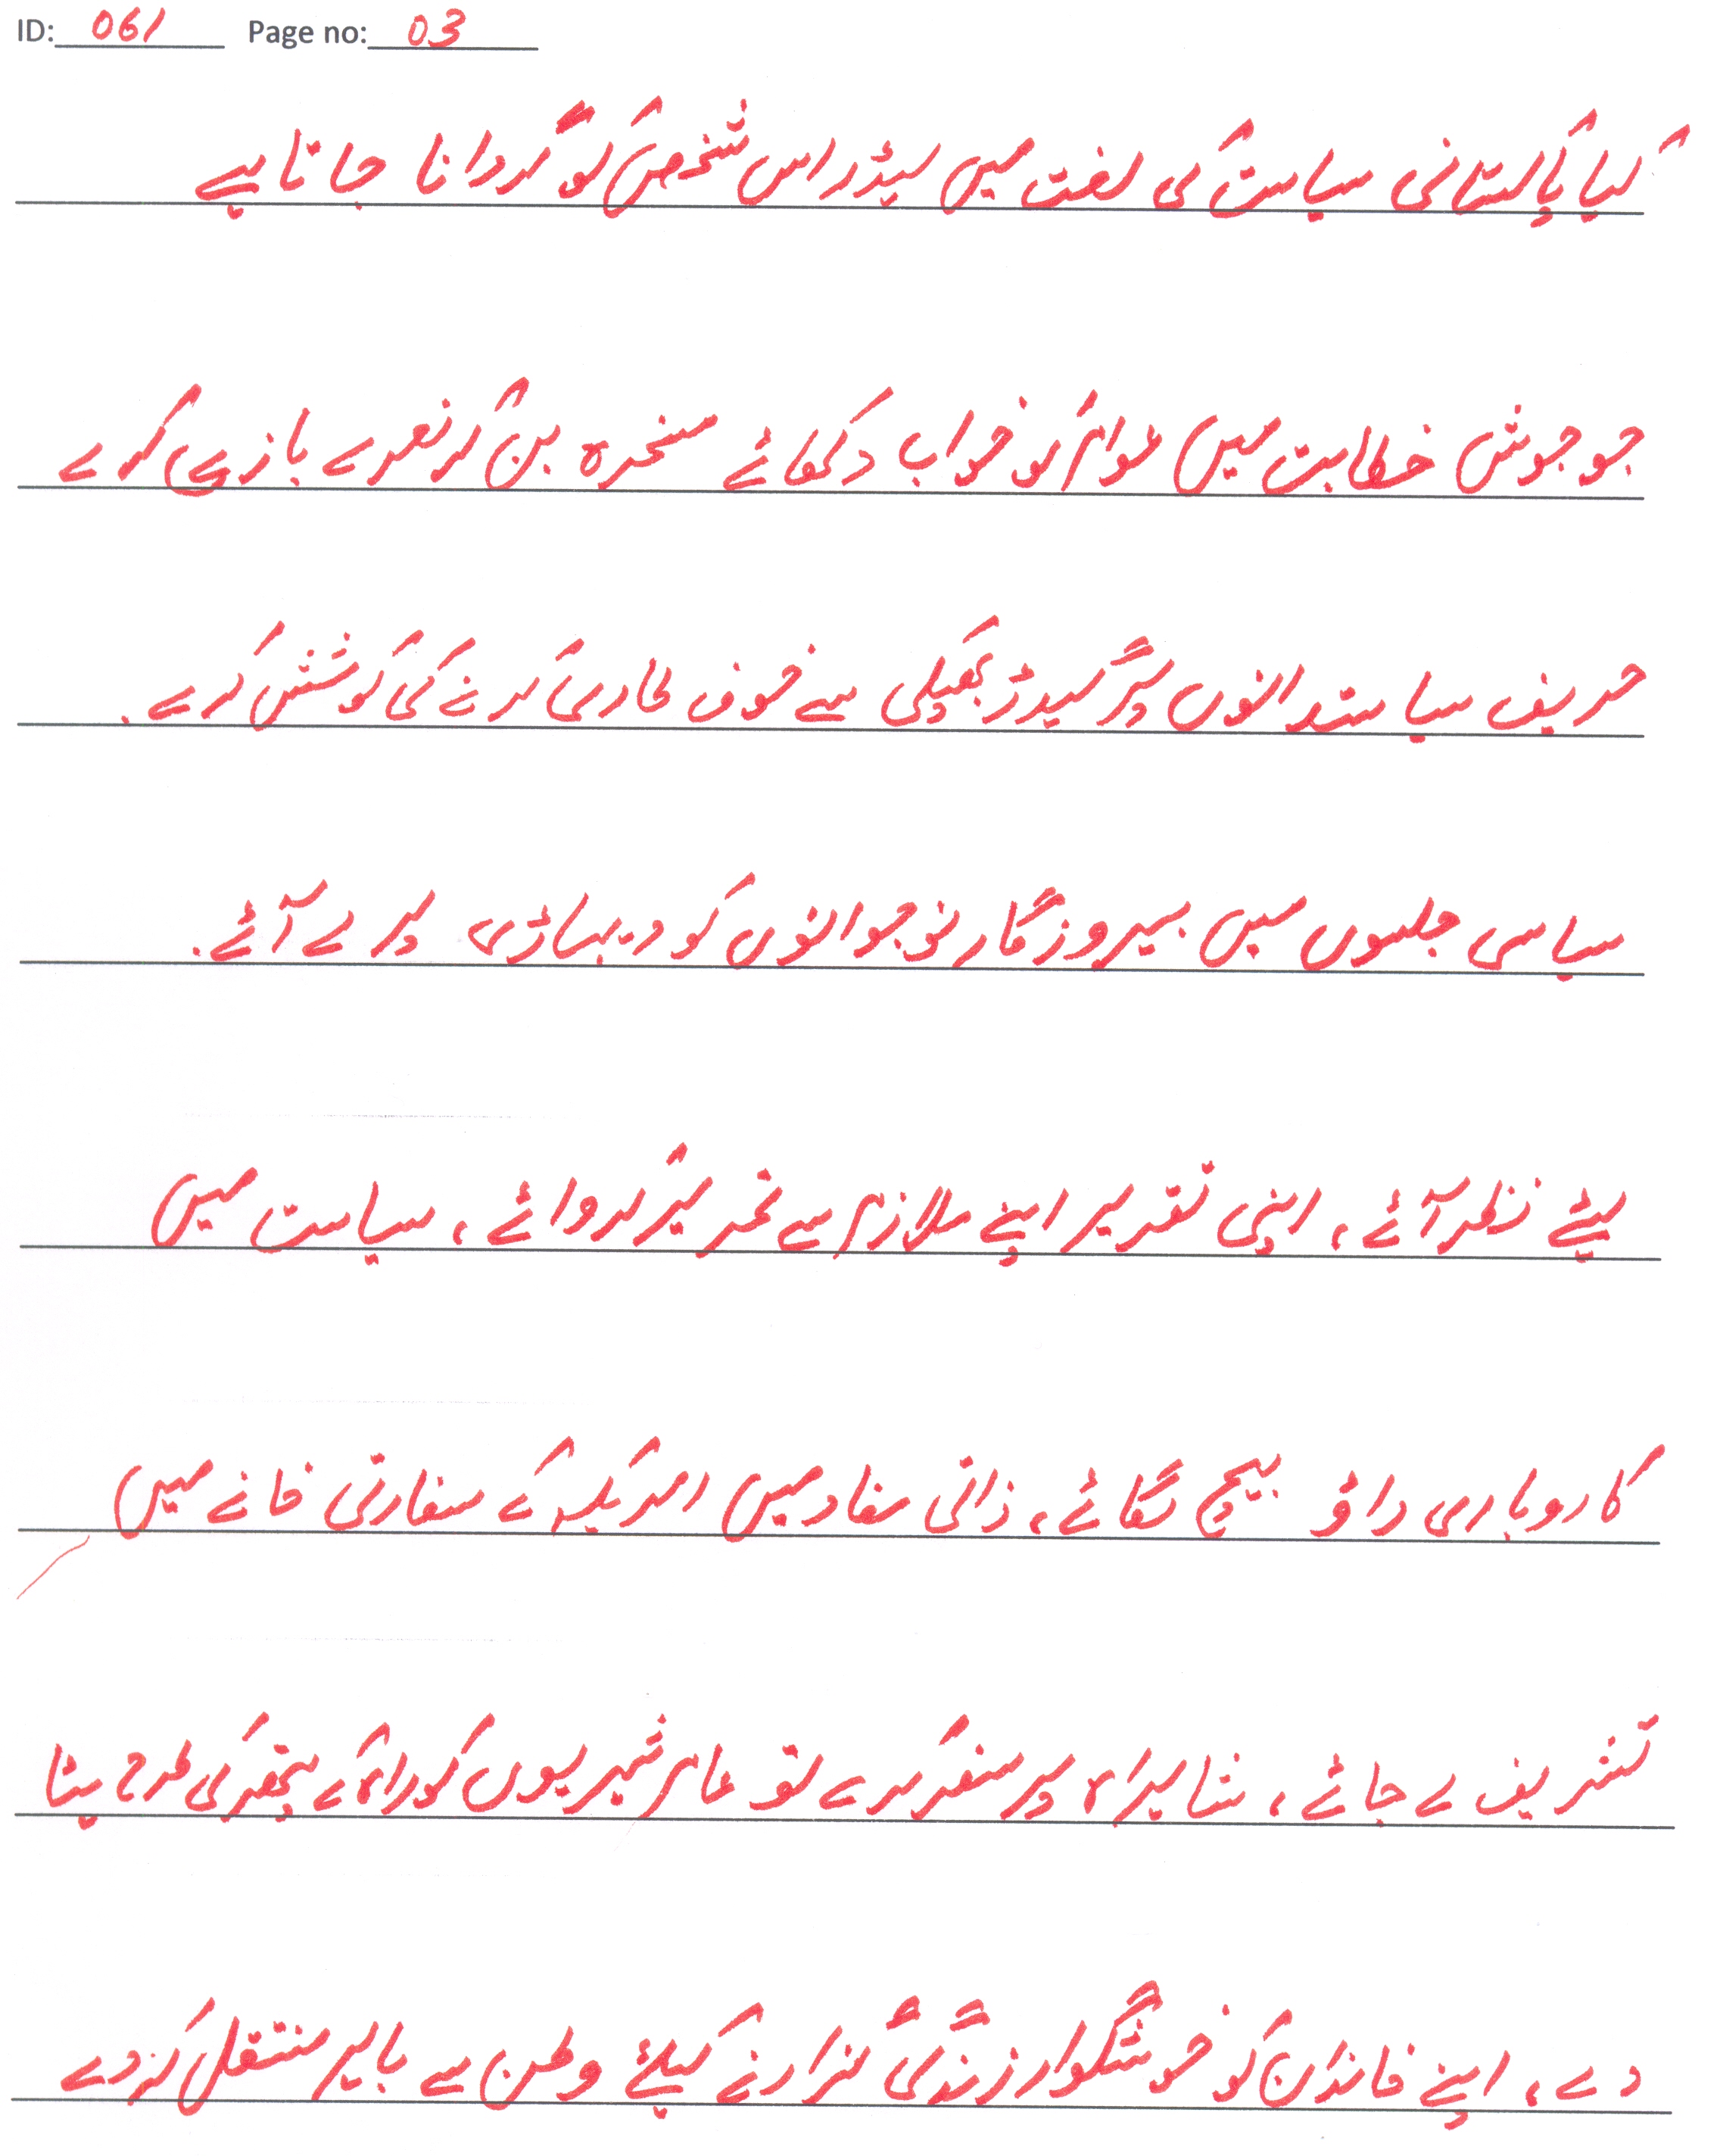 ID: 061 Page no: 03
کیا پاکستانی سیاست کی لغت میں لیڈر اس شخص کو گردانا جاتا ہے
جو جوش خطابت میں عوام کو خواب دکھائے مسخرہ بن کر نعرے بازی کرے
حریف سیاستدانوں پر گیدڑ بھبکی سے خوف طاری کرنے کی کوشش کرے.
سیاسی جلسوں میں بیروزگار نوجوانوں کو دیہاڑی پر لے آئے.
لیئے نظر آئے، اپنی تقریر اپنے ملازم سے تحریر کروائے، سیاست میں
کاروباری داؤ پیچ لگائے، ذاتی مفاد میں امریکہ کے سفارتی خانے میں
تشریف لے جائے، شاہراہ پر سفر کرے تو عام شہریوں کو راہ کے پتھر کی طرح ہٹا
دے، اپنے خاندان کو خوشگوار زندگی گزارنے کیلئے وطن سے باہر منتقل کر دے